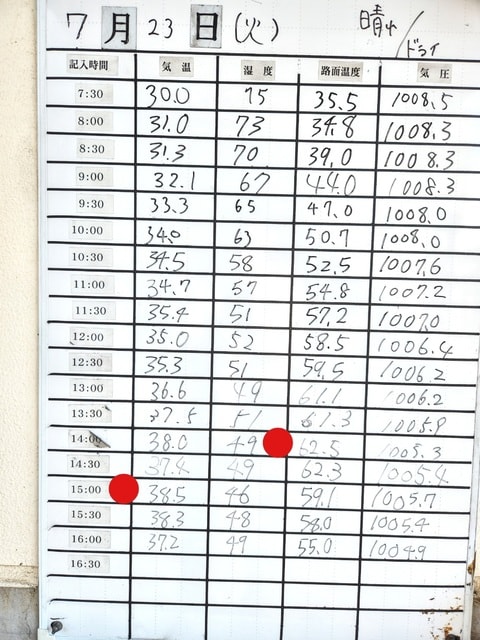 7月23日(火) 晴れ/ドライ
記入時間 気温 湿度 路面温度 気圧
7:30 30.0 75 35.5 1008.5
8:00 31.0 73 34.8 1008.3
8:30 31.3 70 39.0 1008.3
9:00 32.1 67 44.0 1008.3
9:30 33.3 65 47.0 1008.0
10:00 34.0 63 50.7 1008.0
10:30 34.5 58 52.5 1007.6
11:00 34.7 57 54.8 1007.2
11:30 35.4 51 57.2 1007.0
12:00 35.0 52 58.5 1006.4
12:30 35.3 51 59.5 1006.2
13:00 36.6 49 61.1 1006.2
13:30 37.5 51 61.3 1005.9
14:00 38.0 49 62.5 1005.3
14:30 37.4 49 62.3 1005.4
15:00 38.5 46 59.1 1005.7
15:30 38.3 48 58.0 1005.4
16:00 37.2 49 55.0 1004.9
16:30